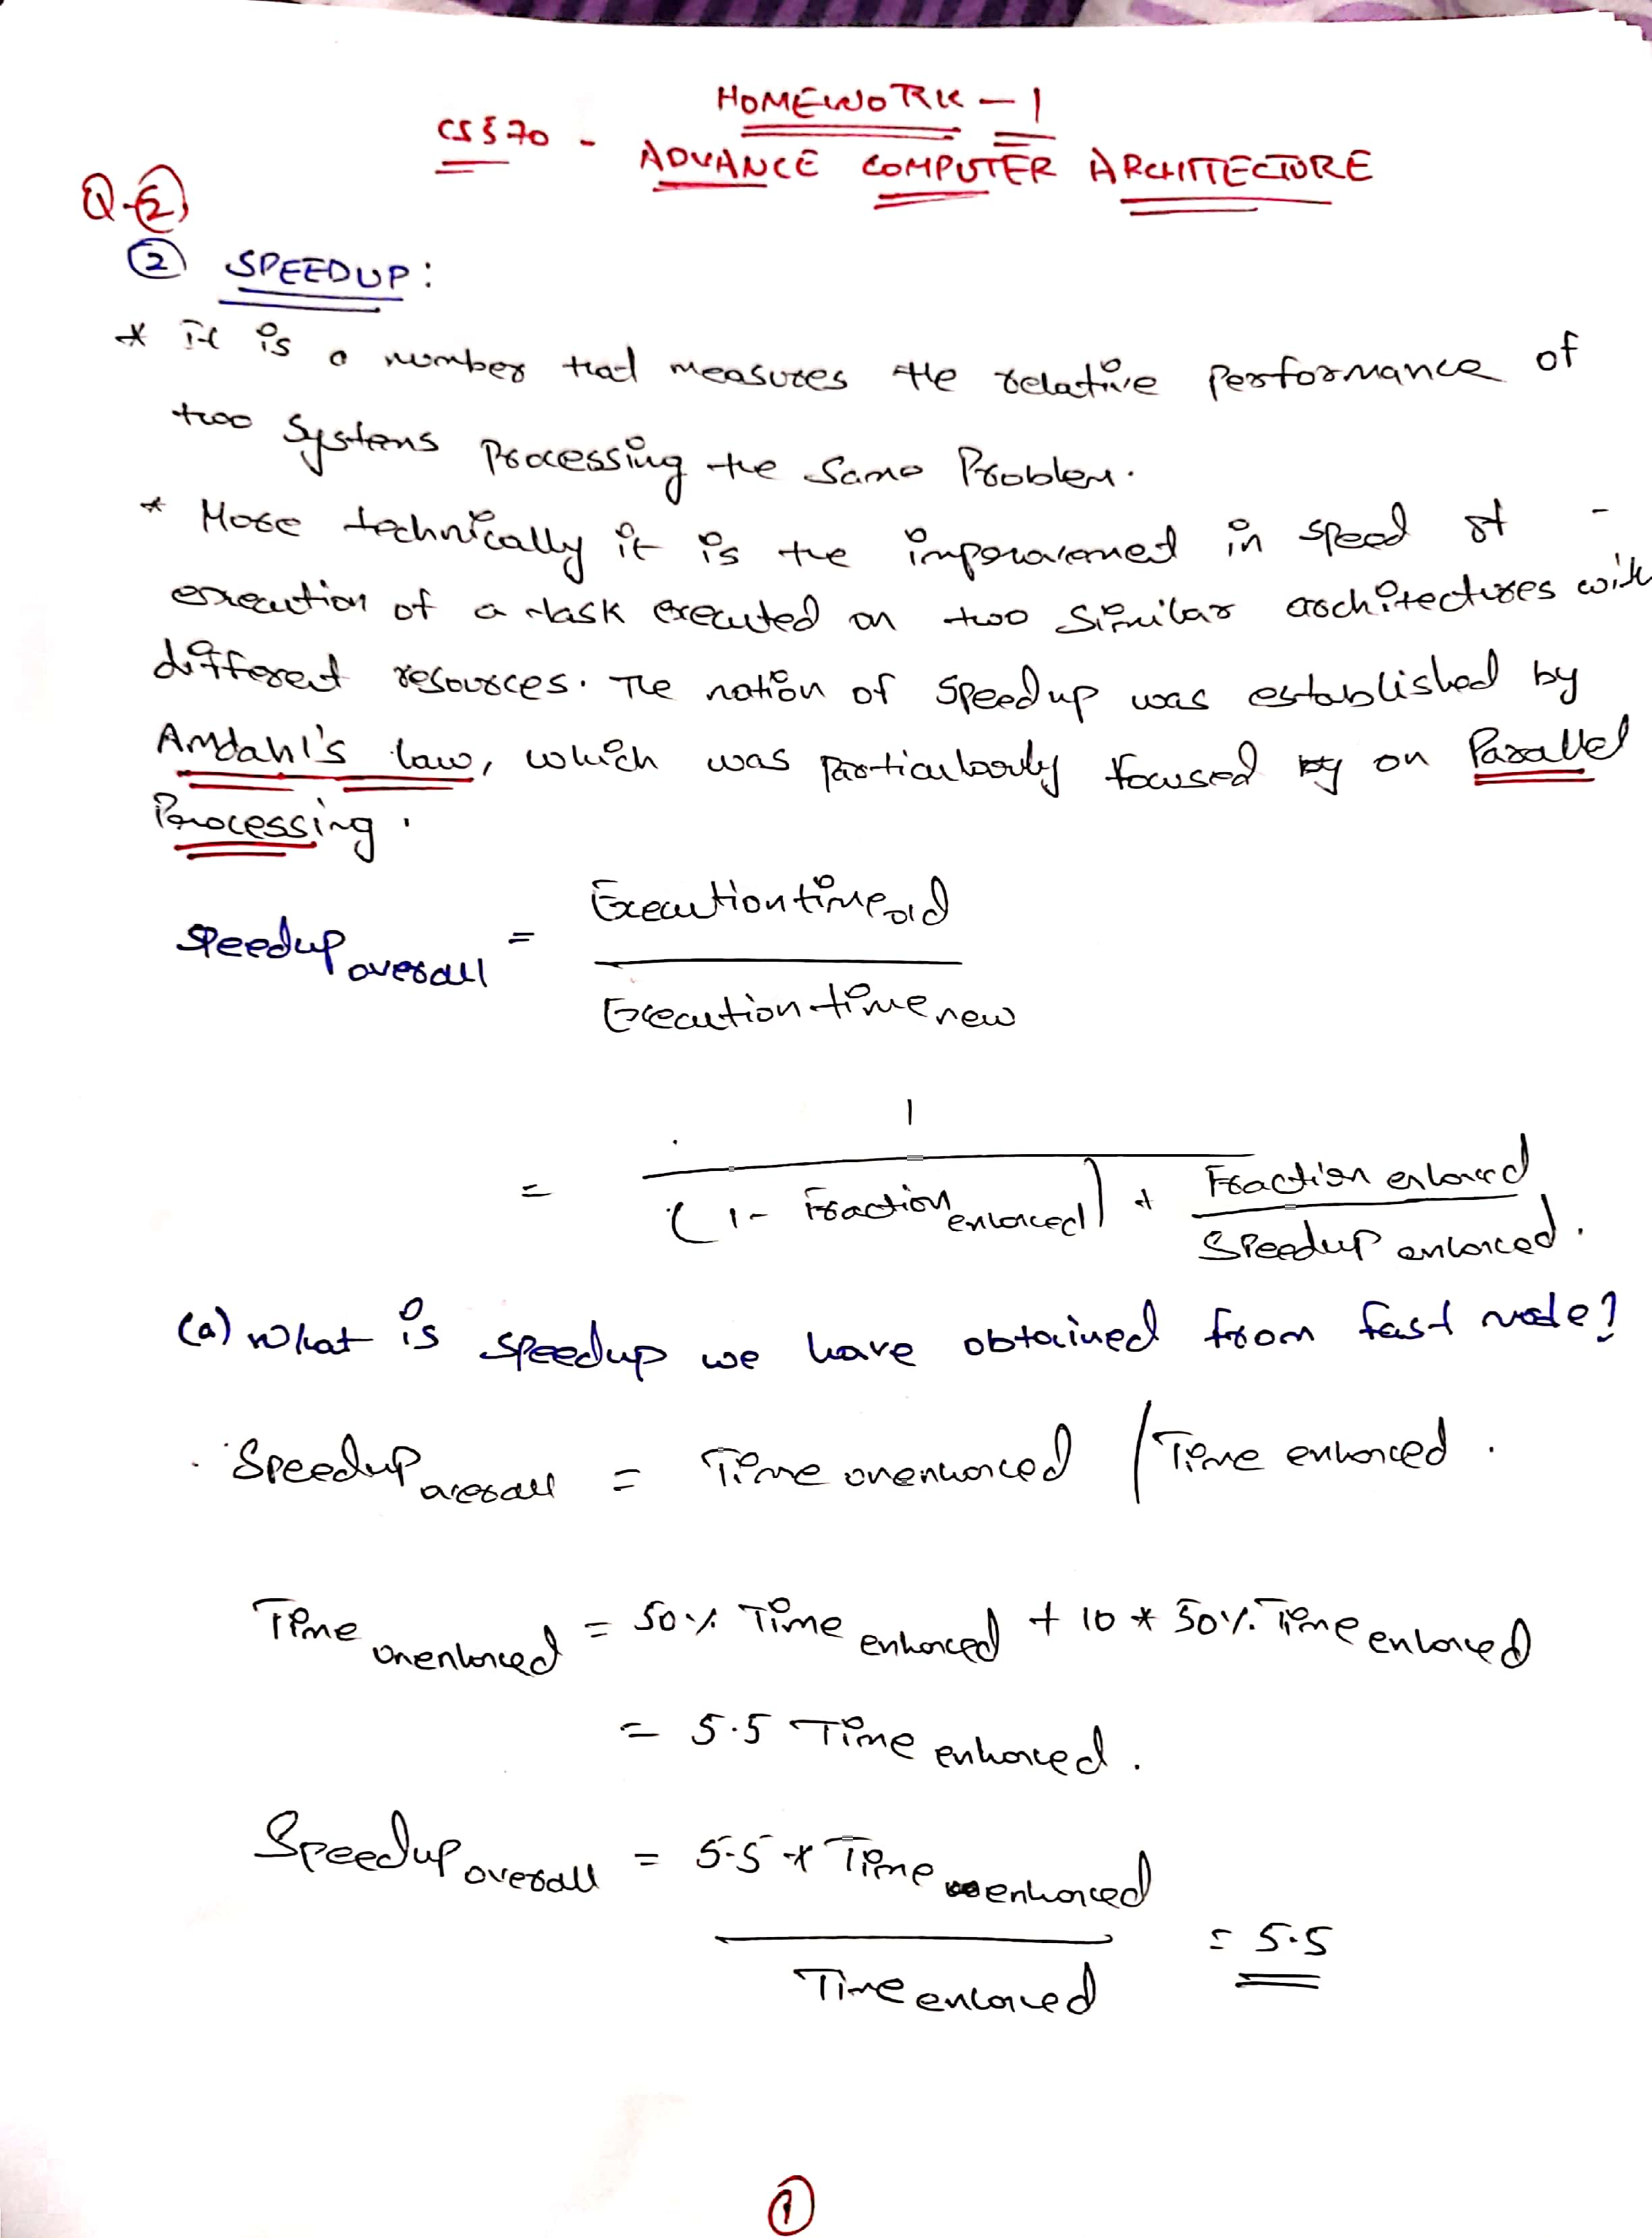 HOMEWORK - 1
CS570 - ADVANCE COMPUTER ARCHITECTURE
Q-2)
2 SPEEDUP:
* It is a number that measures the relative performance of
two systems processing the same problem.
* More technically it is the improvement in speed of -
execution of a task executed on two similar architectures with
different resources. The notion of speedup was established by
Amdahl's law, which was particularly focused by on Parallel
Processing.
Speedup overall = Execution time old / Execution time new
= 1 / (1 - Fraction enhanced) + Fraction enhanced / Speedup enhanced.
(a) What is speedup we have obtained from fast mode?
Speedup overall = Time unenhanced / Time enhanced.
Time unenhanced = 50% Time enhanced + 10 * 50% Time enhanced
= 5.5 Time enhanced.
Speedup overall = 5.5 * Time enhanced / Time enhanced = 5.5
1